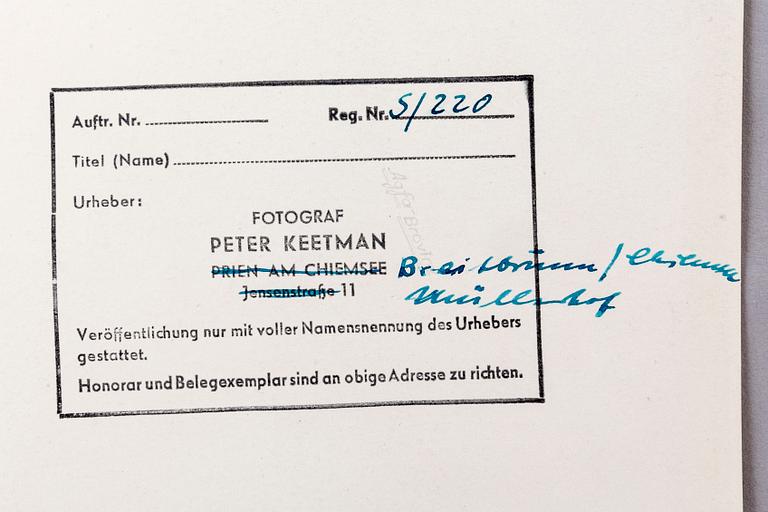 Auftr. Nr.
Reg. Nr. S/220
Titel (Name)
Urheber:
FOTOGRAF
PETER KEETMAN
PRIEN AM CHIEMSEE Breitbrunn/Chiemsee
Jensenstraße 11 Müllerhof
Veröffentlichung nur mit voller Namensnennung des Urhebers
gestattet.
Honorar und Belegexemplar sind an obige Adresse zu richten.
Agfa Brovira